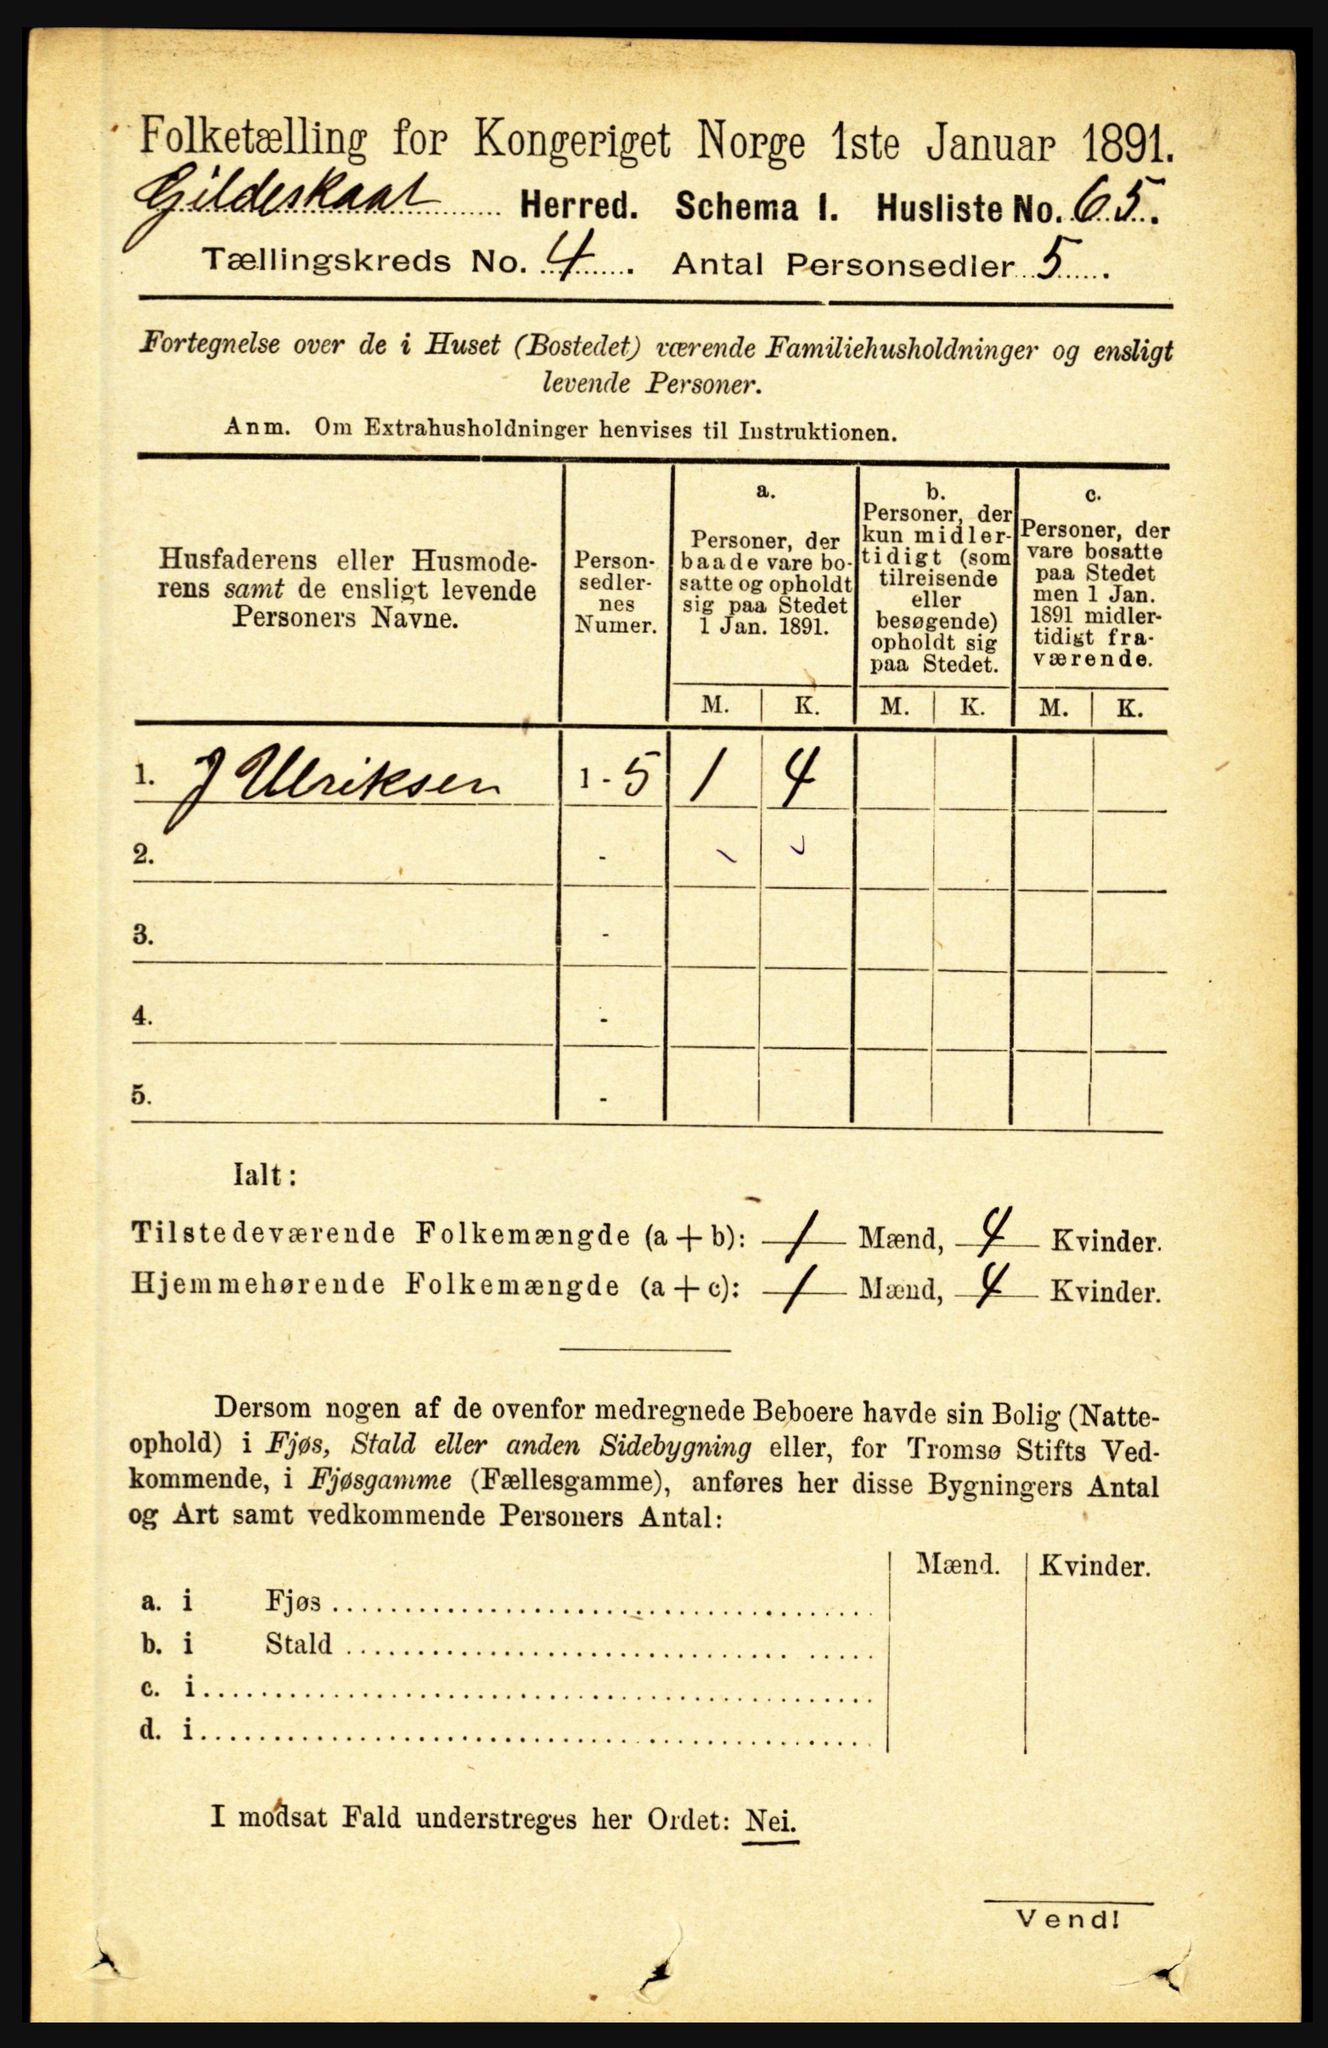 Folketælling for Kongeriget Norge 1ste Januar 1891.
Gildeskaal Herred. Schema I. Husliste No. 65.
Tællingskreds No. 4. Antal Personsedler 5.
Fortegnelse over de i Huset (Bostedet) værende Familiehusholdninger og ensligt
levende Personer.
Anm. Om Extrahusholdninger henvises til Instruktionen.
Husfaderens eller Husmode-
rens samt de ensligt levende
Personers Navne.
Person-
sedler-
nes
Numer.
a.
Personer, der
baade vare bo-
satte og opholdt
sig paa Stedet
1 Jan. 1891.
b.
Personer, der
kun midler-
tidigt (som
tilreisende
eller
besøgende)
opholdt sig
paa Stedet.
c.
Personer, der
vare bosatte
paa Stedet
men 1 Jan.
1891 midler-
tidigt fra-
værende.
M. K. M. K. M. K.
1. J Ulriksen 1 - 5 1 4
2. -
3. -
4. -
5. -
Ialt:
Tilstedeværende Folkemængde (a + b): 1 Mænd, 4 Kvinder.
Hjemmehørende Folkemængde (a + c): 1 Mænd, 4 Kvinder.
Dersom nogen af de ovenfor medregnede Beboere havde sin Bolig (Natte-
ophold) i Fjøs, Stald eller anden Sidebygning eller, for Tromsø Stifts Ved-
kommende, i Fjøsgamme (Fællesgamme), anføres her disse Bygningers Antal
og Art samt vedkommende Personers Antal:
Mænd. Kvinder.
a. i Fjøs
b. i Stald
c. i
d. i
I modsat Fald understreges her Ordet: Nei.
Vend!